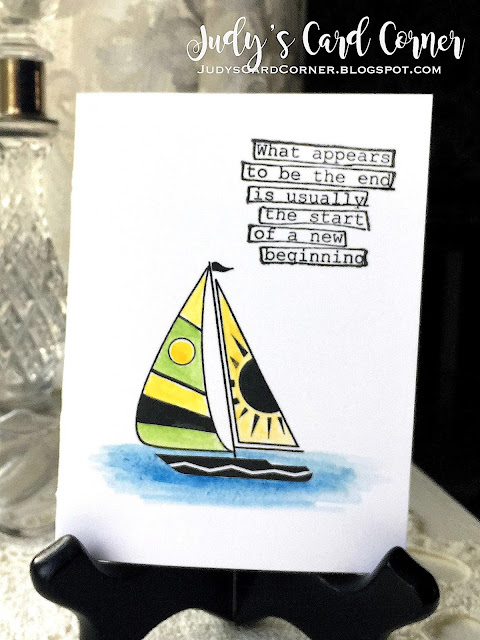 Judy's Card Corner
JudysCardCorner.blogspot.com
What appears
to be the end
is usually
the start
of a new
beginning